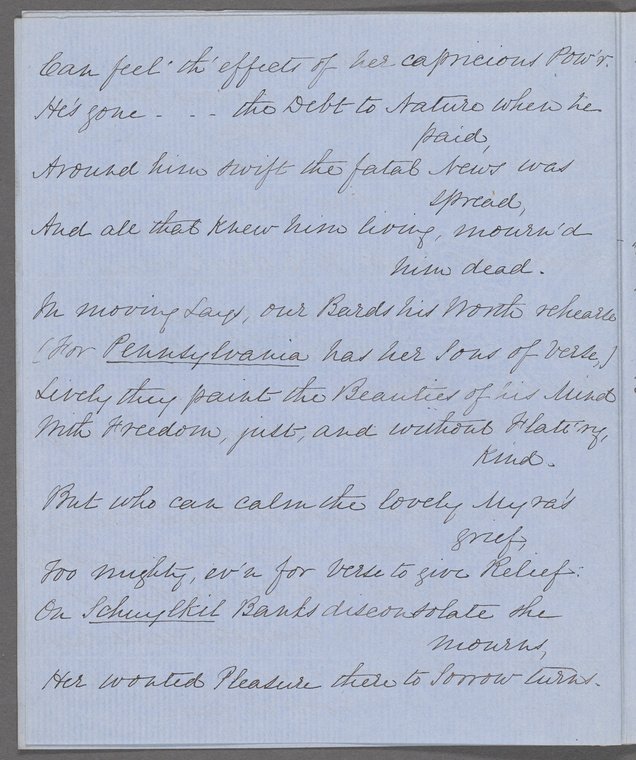 Can feel th' effects of her capricious Pow'r.
He's gone - - - the Debt to Nature when he
paid,
Around him swift the fatal News was
spread,
And all that knew him living, mourn'd
him dead.
In moving Lays, our Bards his Worth rehearse
(For Pennsylvania has her Sons of Verse,)
Lively they paint the Beauties of his Mind
With Freedom, just, and without Flatt'ry,
Kind.
But who can calm the lovely Myra's
grief,
Too mighty, ev'n for Verse to give Relief:
On Schuylkil Banks disconsolate she
mourns,
Her wonted Pleasure there to Sorrow turns.